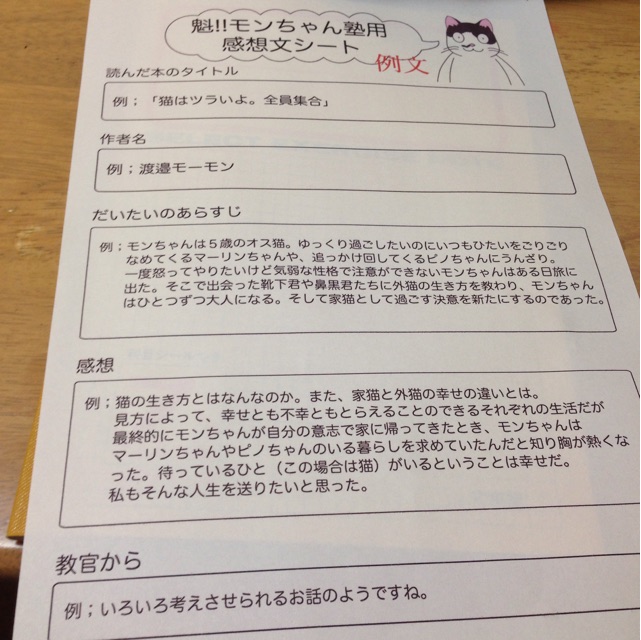 魁!!モンちゃん塾用
感想文シート
例文
読んだ本のタイトル
例；「猫はツラいよ。全員集合」
作者名
例；渡邉モーモン
だいたいのあらすじ
例；モンちゃんは５歳のオス猫。ゆっくり過ごしたいのにいつもひたいをごりごり
なめてくるマーリンちゃんや、追っかけ回してくるピノちゃんにうんざり。
一度怒ってやりたいけど気弱な性格で注意ができないモンちゃんはある日旅に
出た。そこで出会った靴下君や鼻黒君たちに外猫の生き方を教わり、モンちゃん
はひとつずつ大人になる。そして家猫として過ごす決意を新たにするのであった。
感想
例；猫の生き方とはなんなのか。また、家猫と外猫の幸せの違いとは。
見方によって、幸せとも不幸ともとらえることのできるそれぞれの生活だが
最終的にモンちゃんが自分の意志で家に帰ってきたとき、モンちゃんは
マーリンちゃんやピノちゃんのいる暮らしを求めていたんだと知り胸が熱くな
った。待っているひと（この場合は猫）がいるということは幸せだ。
私もそんな人生を送りたいと思った。
教官から
例；いろいろ考えさせられるお話のようですね。